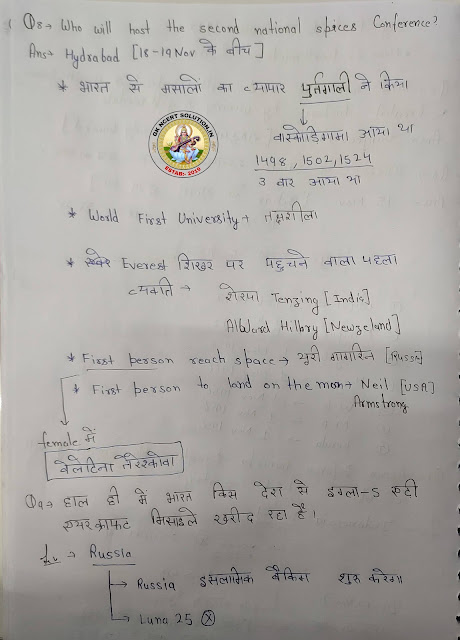 Q8→ Who will host the second national spices Conference?
Ans→ Hydrabad [18-19 Nov के बीच]
* भारत से मसालों का व्यापार पुर्तगाली ने किया
वास्कोडिगामा आया था
1498, 1502, 1524
3 बार आया था
GK NCERT SOLUTION.IN
ESTAB:- 2019
* World First University → तक्षशीला
* Everest शिखर पर पहुचने वाला पहला
व्यक्ति → शेरपा Tenzing [India]
Alward Hilbry [Newzeland]
* First person reach space → यूरी गागरिन [Russia]
* First person to land on the moon → Neil [USA]
Armstrong
female में
वेलेंटिना तेरेस्कोवा
Q9→ हाल ही में भारत किस देश से इग्ला-S एन्टी
एयरक्राफ्ट मिसाइले खरीद रहा है।
→ Russia
→ Russia इसलामिक बैंकिंग शुरू करेगा
→ Luna 25 ⓧ